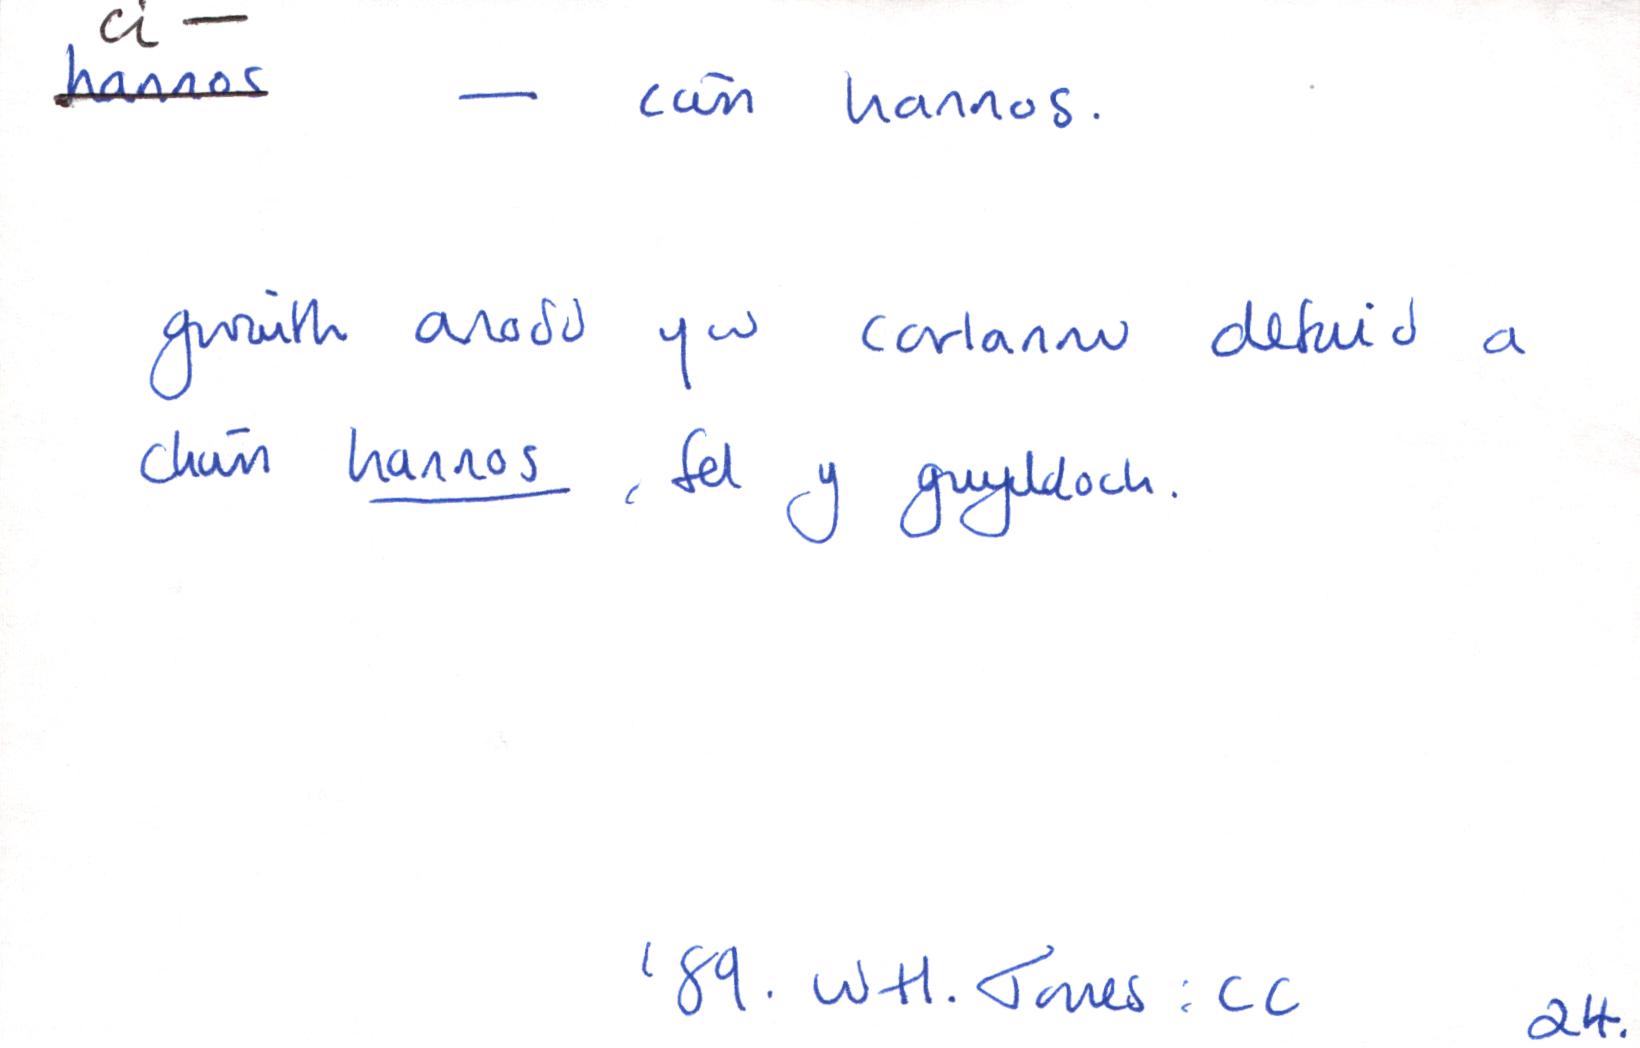 ci —
hannos — cŵn hannos.
gwaith anodd yw corlannu defaid a
chŵn hannos, fel y gwyddoch.
'89. W H. Jones : CC 24.